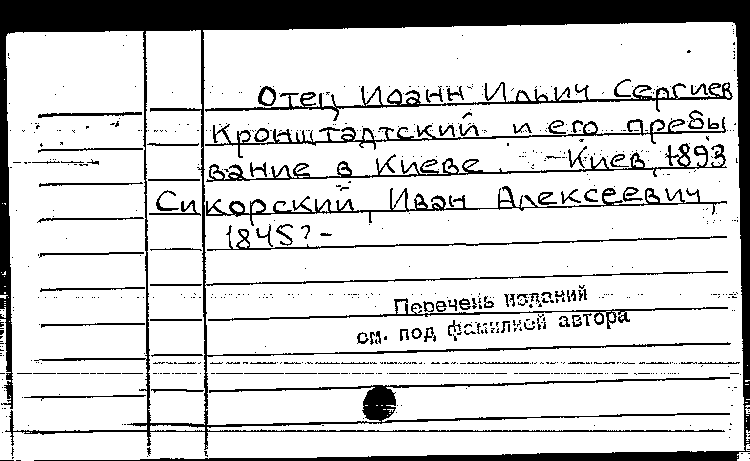 Отец Иоанн Ильич Сергиев
Кронштадтский и его пребы
вание в Киеве. - Киев, 1893
Сикорский, Иван Алексеевич,
1845?-
Перечень изданий
см. под фамилией автора